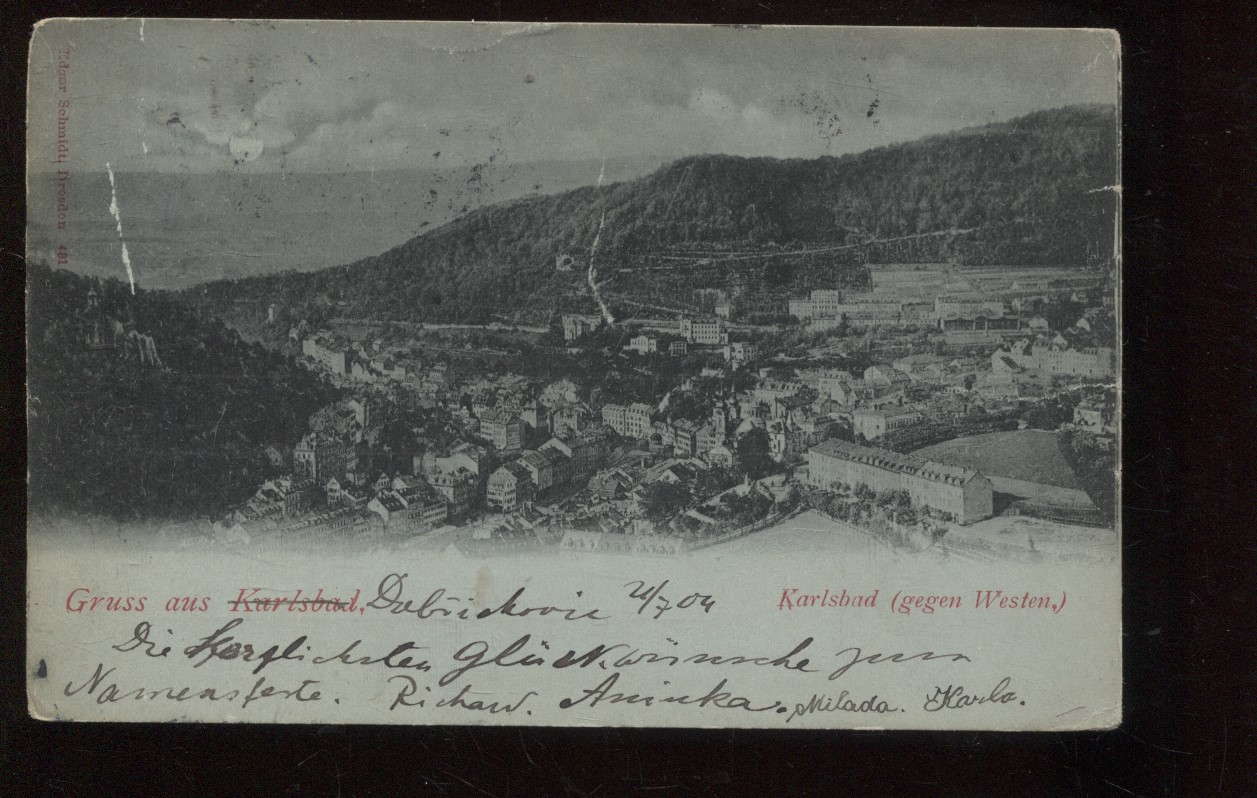 Edgar Schmidt, Dresden 481
Gruss aus Karlsbad, 21/7 04
Karlsbad (gegen Westen.)
Die herzlichsten Glückwünsche zum
Namensfeste. Richard. Aninka. Milada. Karla.